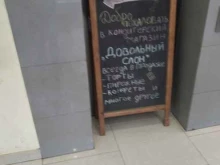 Добро
пожаловать
в кондитерский
магазин
"Довольный
слон"
Всегда в продаже
- торты
- пирожные
- конфеты и
многое другое